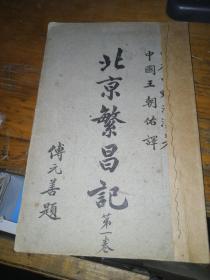 中國王朝佑譯
北京繁昌記
第一卷
傅元善題